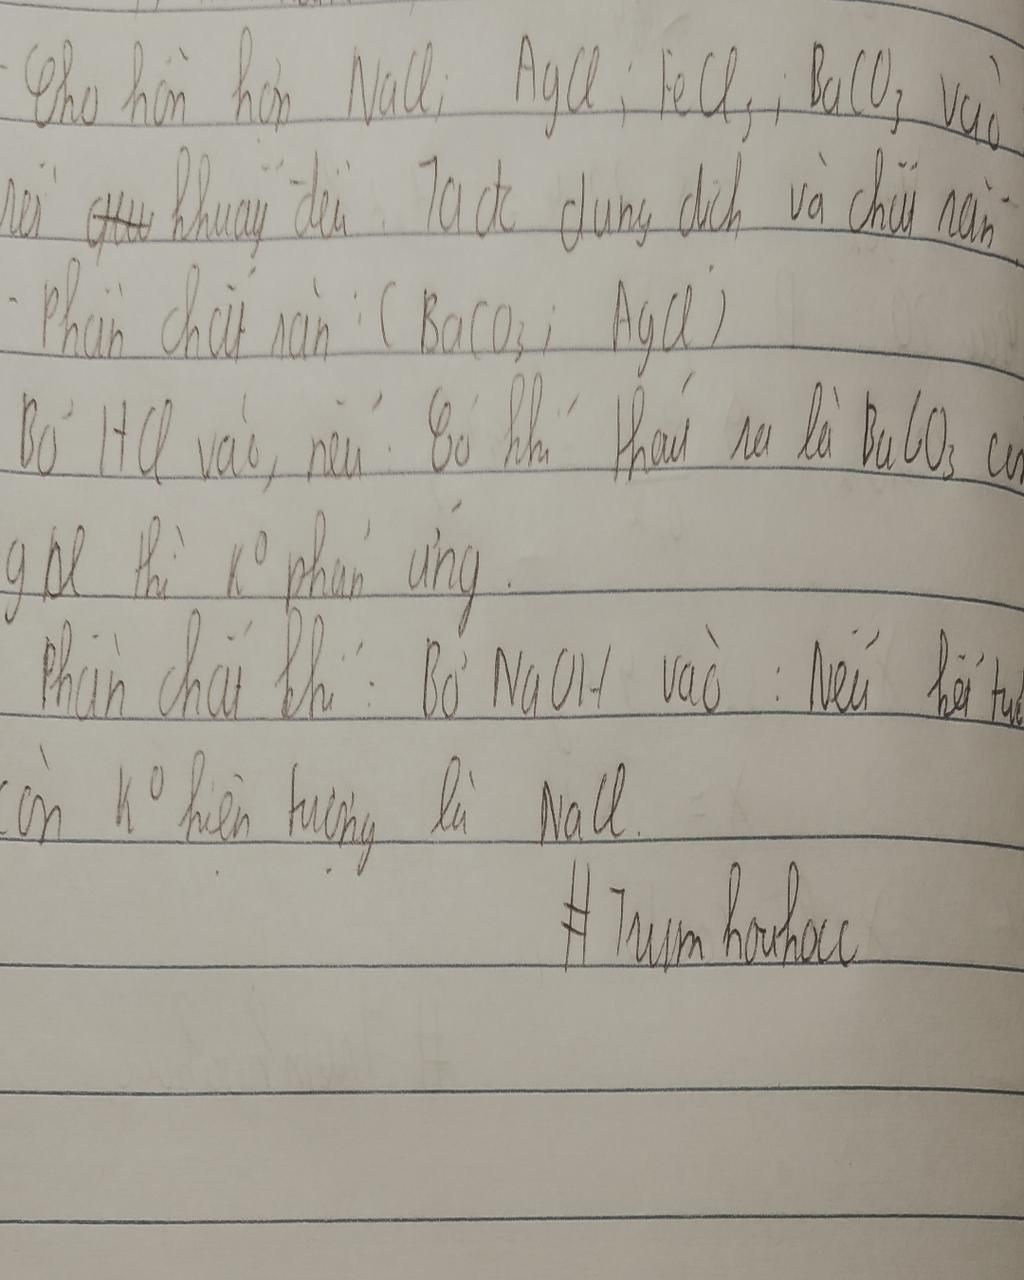 - Cho hỗn hợp NaCl; AgCl; FeCl3; BaCO3 vào
rồi khuấy đều. Ta đc dung dịch và chất rắn
- Phần chất rắn: (BaCO3; AgCl)
Bỏ HCl vào, nếu: Có khí thoát ra là BaCO3 còn
gCl thì k° phản ứng.
Phần chất khí: Bỏ NaOH vào: Nếu kết tủ
còn k° hiện tượng là NaCl.
# Trum houhocc